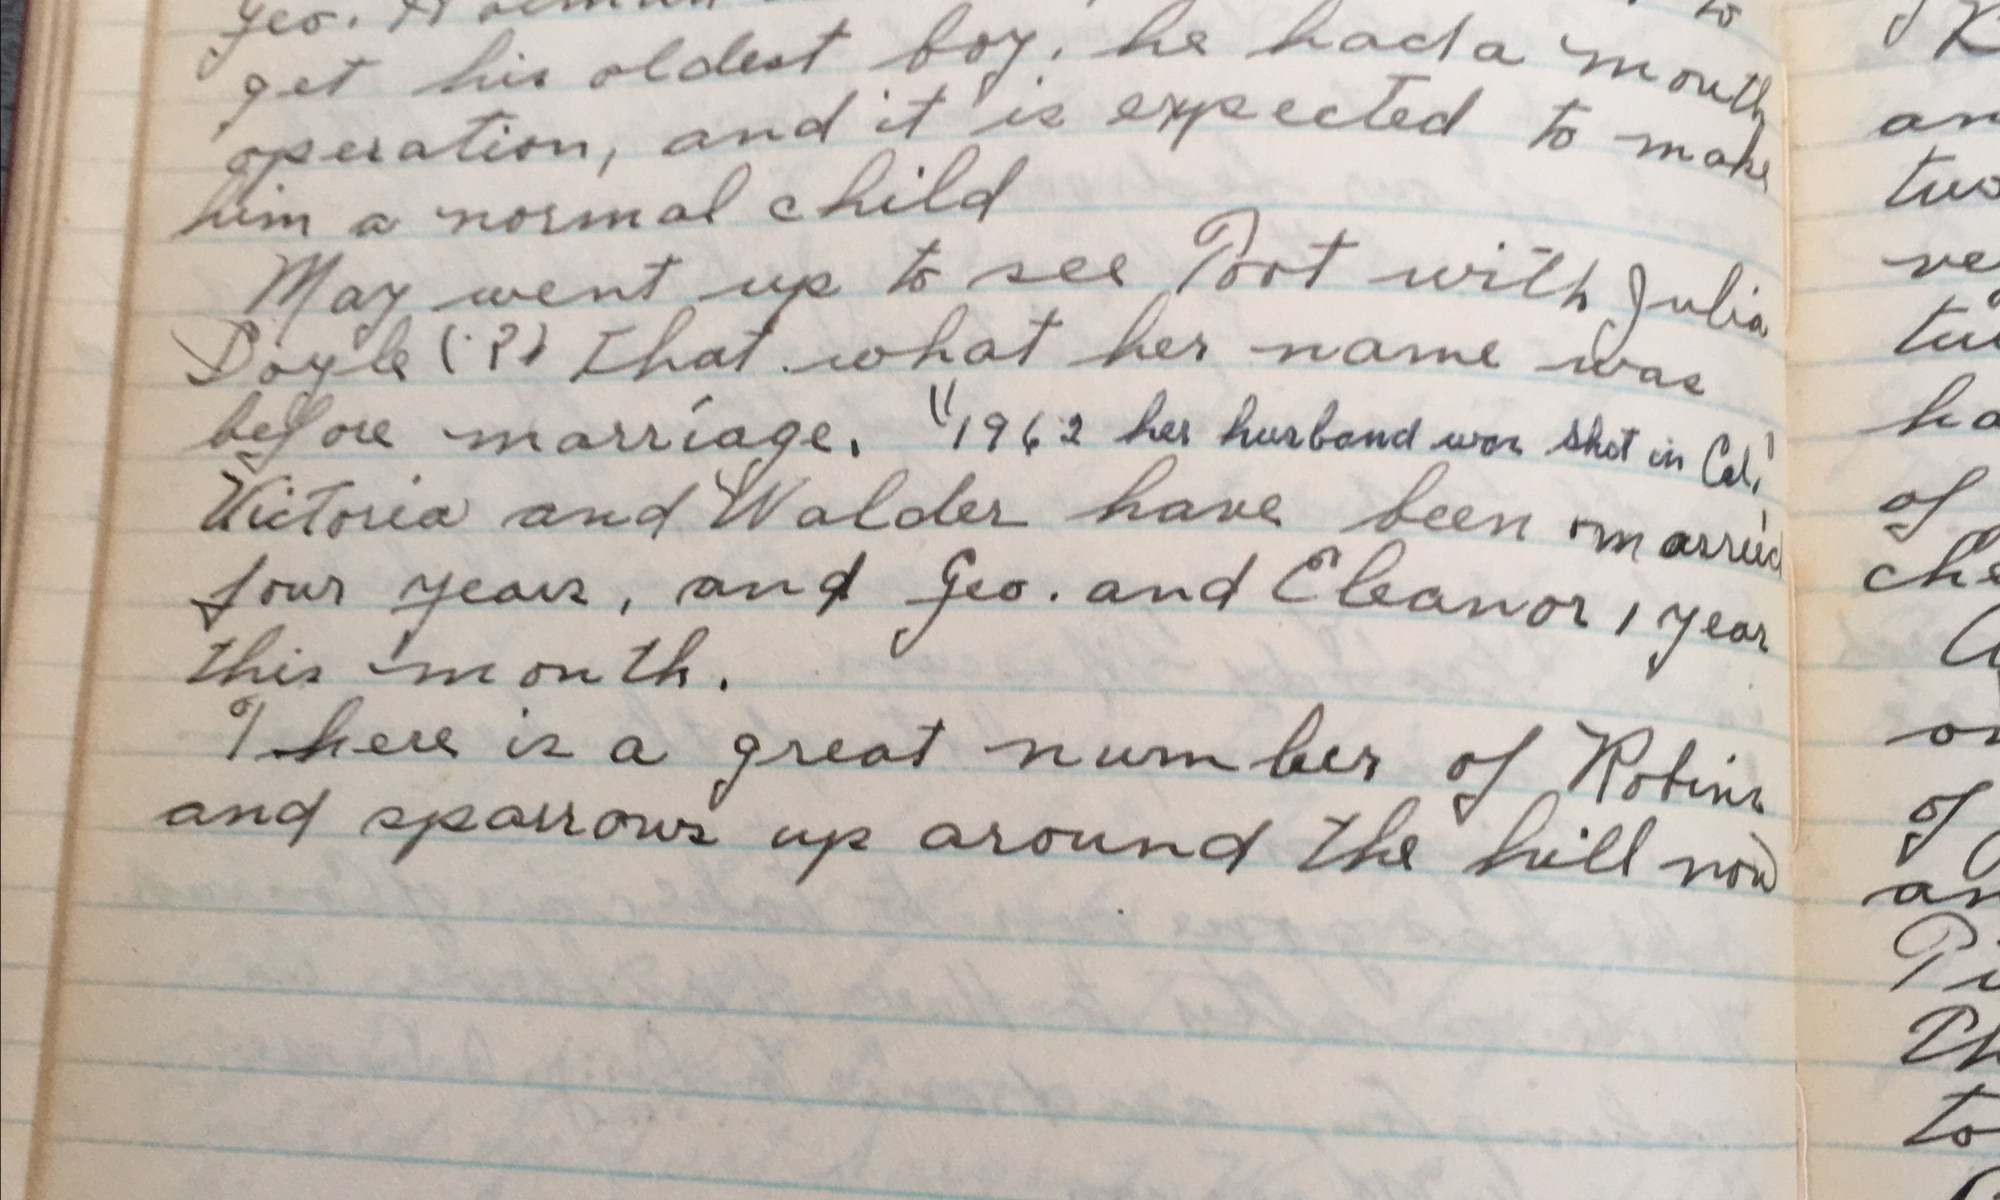 Geo. to
get his oldest boy, he had a mouth
operation, and it is expected to make
him a normal child
May went up to see Port with Julia
Doyle (?) that what her name was
before marriage. "1962 her husband was shot in Cal."
Victoria and Walder have been married
four years, and Geo. and Eleanor 1 year
this month.
There is a great number of Robins
and sparrows up around the hill now
an
two
of
to